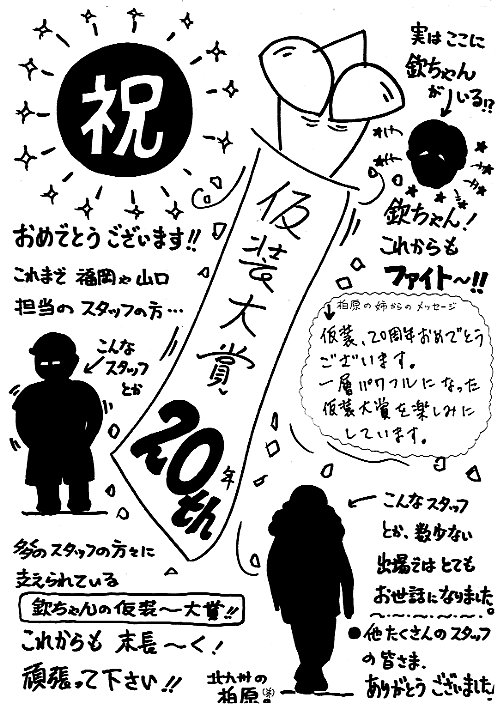 祝
おめでとうございます!!
これまで 福岡や山口
担当の スタッフの方…
こんな
スタッフ
とか
多のスタッフの方々に
支えられている
欽ちゃんの仮装〜大賞!!
これからも 末長〜く!
頑張って下さい!!
仮装大賞
20th
年
実はここに
欽ちゃん
がいる!?
欽ちゃん!
これからも
ファイト〜!!
柏原の姉からのメッセージ
仮装、20周年おめでとう
ございます。
一層パワフルになった
仮装大賞を楽しみに
しています。
こんなスタッフ
とか、数少ない
出場ではとても
お世話になりました。
●他たくさんのスタッフ
の皆さま、
ありがとうございました!
北九州の
柏原